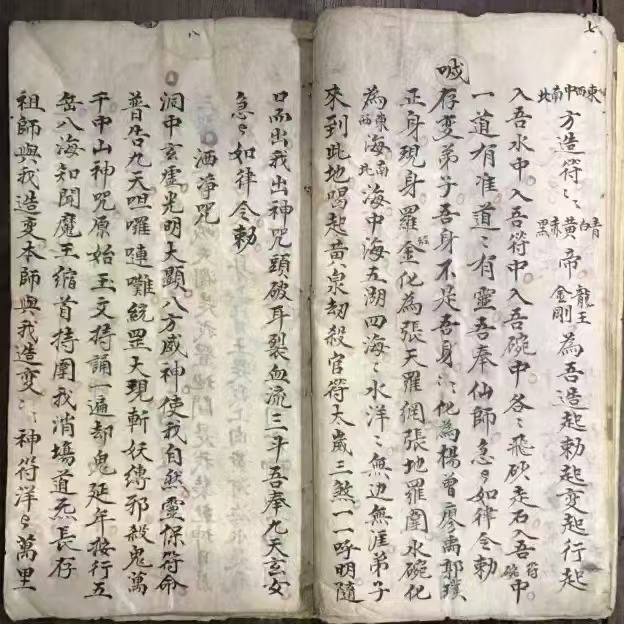 七
東西中南北方造符々青白黃赤黑帝龍王金剛為吾造起勅起変起行起
入吾水中入吾符中入吾碗中各々飛砂走石入吾符碗中
一道有准道々有靈吾奉仙師急々如律令勅
存变弟子吾身不是吾身々化為楊曾廖禹郭璞
正身現身羅金化為張天羅網張地羅圍水碗化
為東西南北海中海五湖四海々水洋々無边無涯弟子
來到此地喝起黃泉劫殺官符太歲三煞一一呼明隨
八
日而出我出神咒頭破耳裂血流三斗吾奉九天玄女
急々如律令勅
洒净咒
洞中玄虛光明大顕八方威神使我自然靈保符命
普告九天呾囉噠統罡大現斬妖縛邪殺鬼萬
千中山神咒原始玉文持誦一遍却鬼延年按行五
岳八海知聞魔王缩首持圍我消塲道炁長存
祖師與我造变本師與我造变々神符洋々萬里